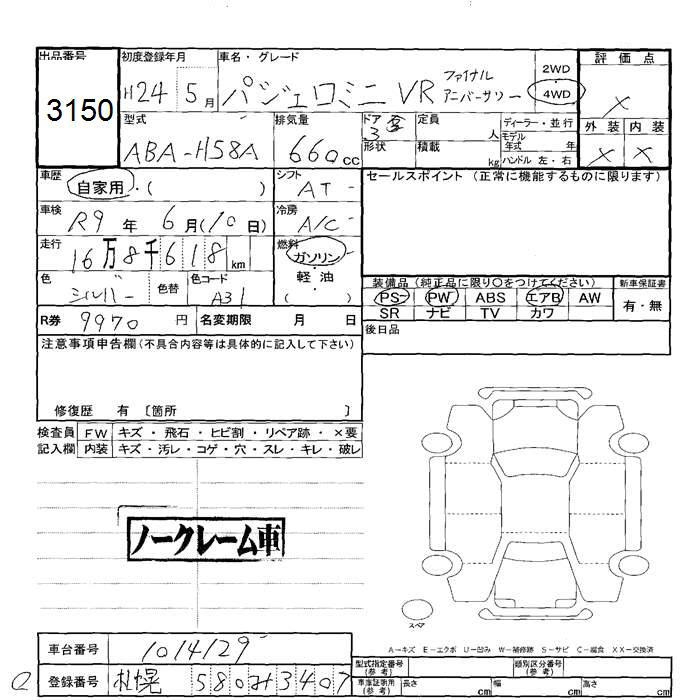 出品番号
3150
初度登録年月
H24 5月
車名・グレード
パジェロミニ VR ファイナル アニバーサリー
2WD
4WD
評価点
×
外装 内装
× ×
型式
ABA-H58A
排気量
660 cc
ドア 3
形状
定員 人
積載 kg
ディーラー・並行
モデル年式 年式
ハンドル 左・右
車歴
自家用・( )
シフト
AT
セールスポイント (正常に機能するものに限ります)
車検
R9年 6月(10日)
冷房
A/C
走行
16万8千618km
燃料
ガソリン
軽・油
( )
色
シルバー
色替
色コード
A31
装備品 (純正品に限り○をつけてください)
新車保証書
PS PW ABS エアB AW
有・無
SR ナビ TV カワ
R券 9970円
名変期限 月 日
後日品
注意事項申告欄(不具合内容等は具体的に記入して下さい)
修復歴 有 〔箇所 〕
検査員 FW キズ・飛石・ヒビ割・リペア跡・×要
記入欄 内装 キズ・汚レ・コゲ・穴・スレ・キレ・破レ
ノークレーム車
スペア
A-キズ E-エクボ U-凹み W-補修跡 S-サビ C-腐食 XX-交換済
車台番号
1014129
型式指定番号(参考)
類別区分番号(参考)
登録番号
札幌 580 み 3407
車庫証明用(参考)
長さ cm 幅 cm 高さ cm